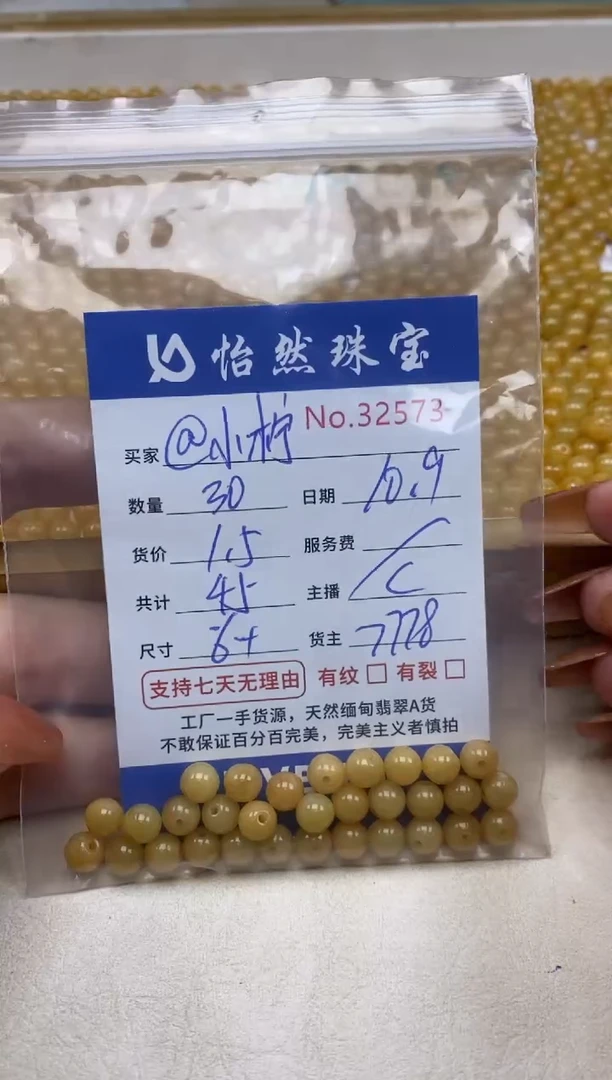 怡然珠宝
No.32573
买家 @小柠
数量 30 日期 10.9
货价 1.5 服务费 /
共计 45 主播 C
尺寸 6+ 货主 7778
支持七天无理由 有纹 □ 有裂 □
工厂一手货源，天然缅甸翡翠A货
不敢保证百分百完美，完美主义者慎拍